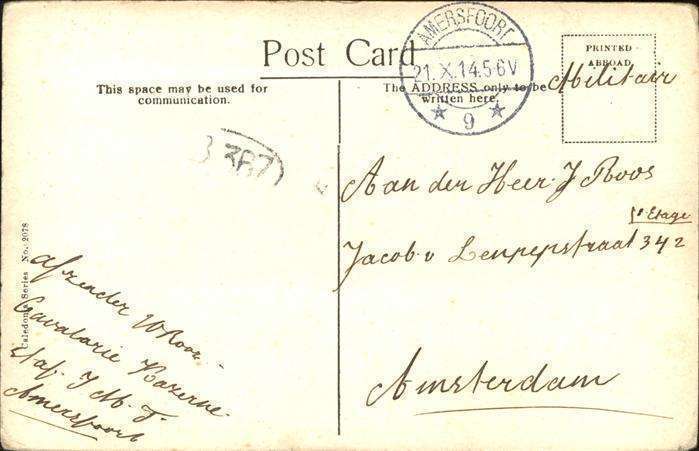 Post Card
This space may be used for
communication.
The ADDRESS only to be
written here.
PRINTED
ABROAD
AMERSFOORT
21.X.14.5-6V
9
Militair
Aan der Heer J Roos
1e Etage
Jacob v Lennepstraat 342
Amsterdam
Caledonia Series No. 2078
afzender W Roos
Cavalarie Kazerne
Staf. I
Amersfoort